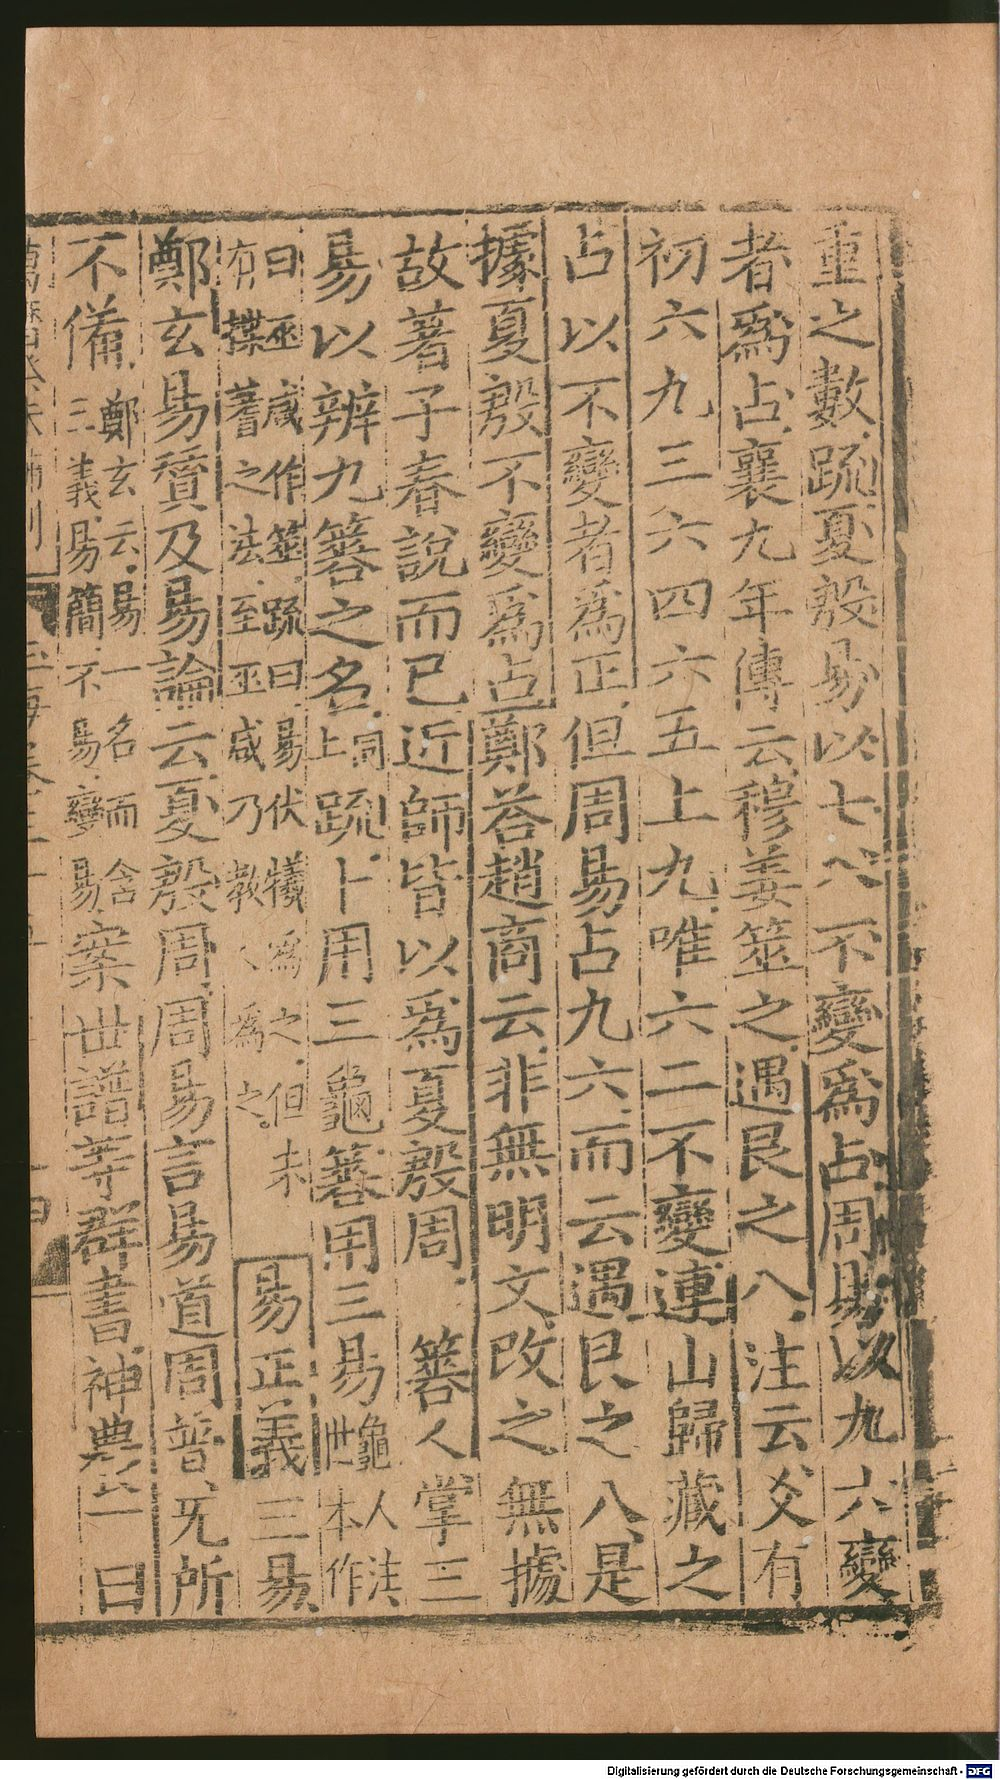 重之數疏夏殷易以七八不變爲占周易以九六變
者爲占襄九年傳云穆姜筮之遇艮之八注云爻有
初六九三六四六五上九唯六二不變連山歸藏之
占以不變者爲正但周易占九六而云遇艮之八是
據夏殷不變爲占鄭荅趙商云非無明文改之無據
故著子春說而已近師皆以爲夏殷周 簭人掌三
易以辨九簭之名上同疏卜用三龜簭用三易龜人法世本作
曰巫咸作筮疏曰易伏犧爲之但未
有揲蓍之法至巫咸乃教人爲之 易正義三易
鄭玄易賛及易論云夏殷周周易言易道周普旡所
不備鄭玄云易一名而含三義易簡不易變易案世譜等群書神農一曰
玉海卷三十五
Digitalisierung gefördert durch die Deutsche Forschungsgemeinschaft - DFG